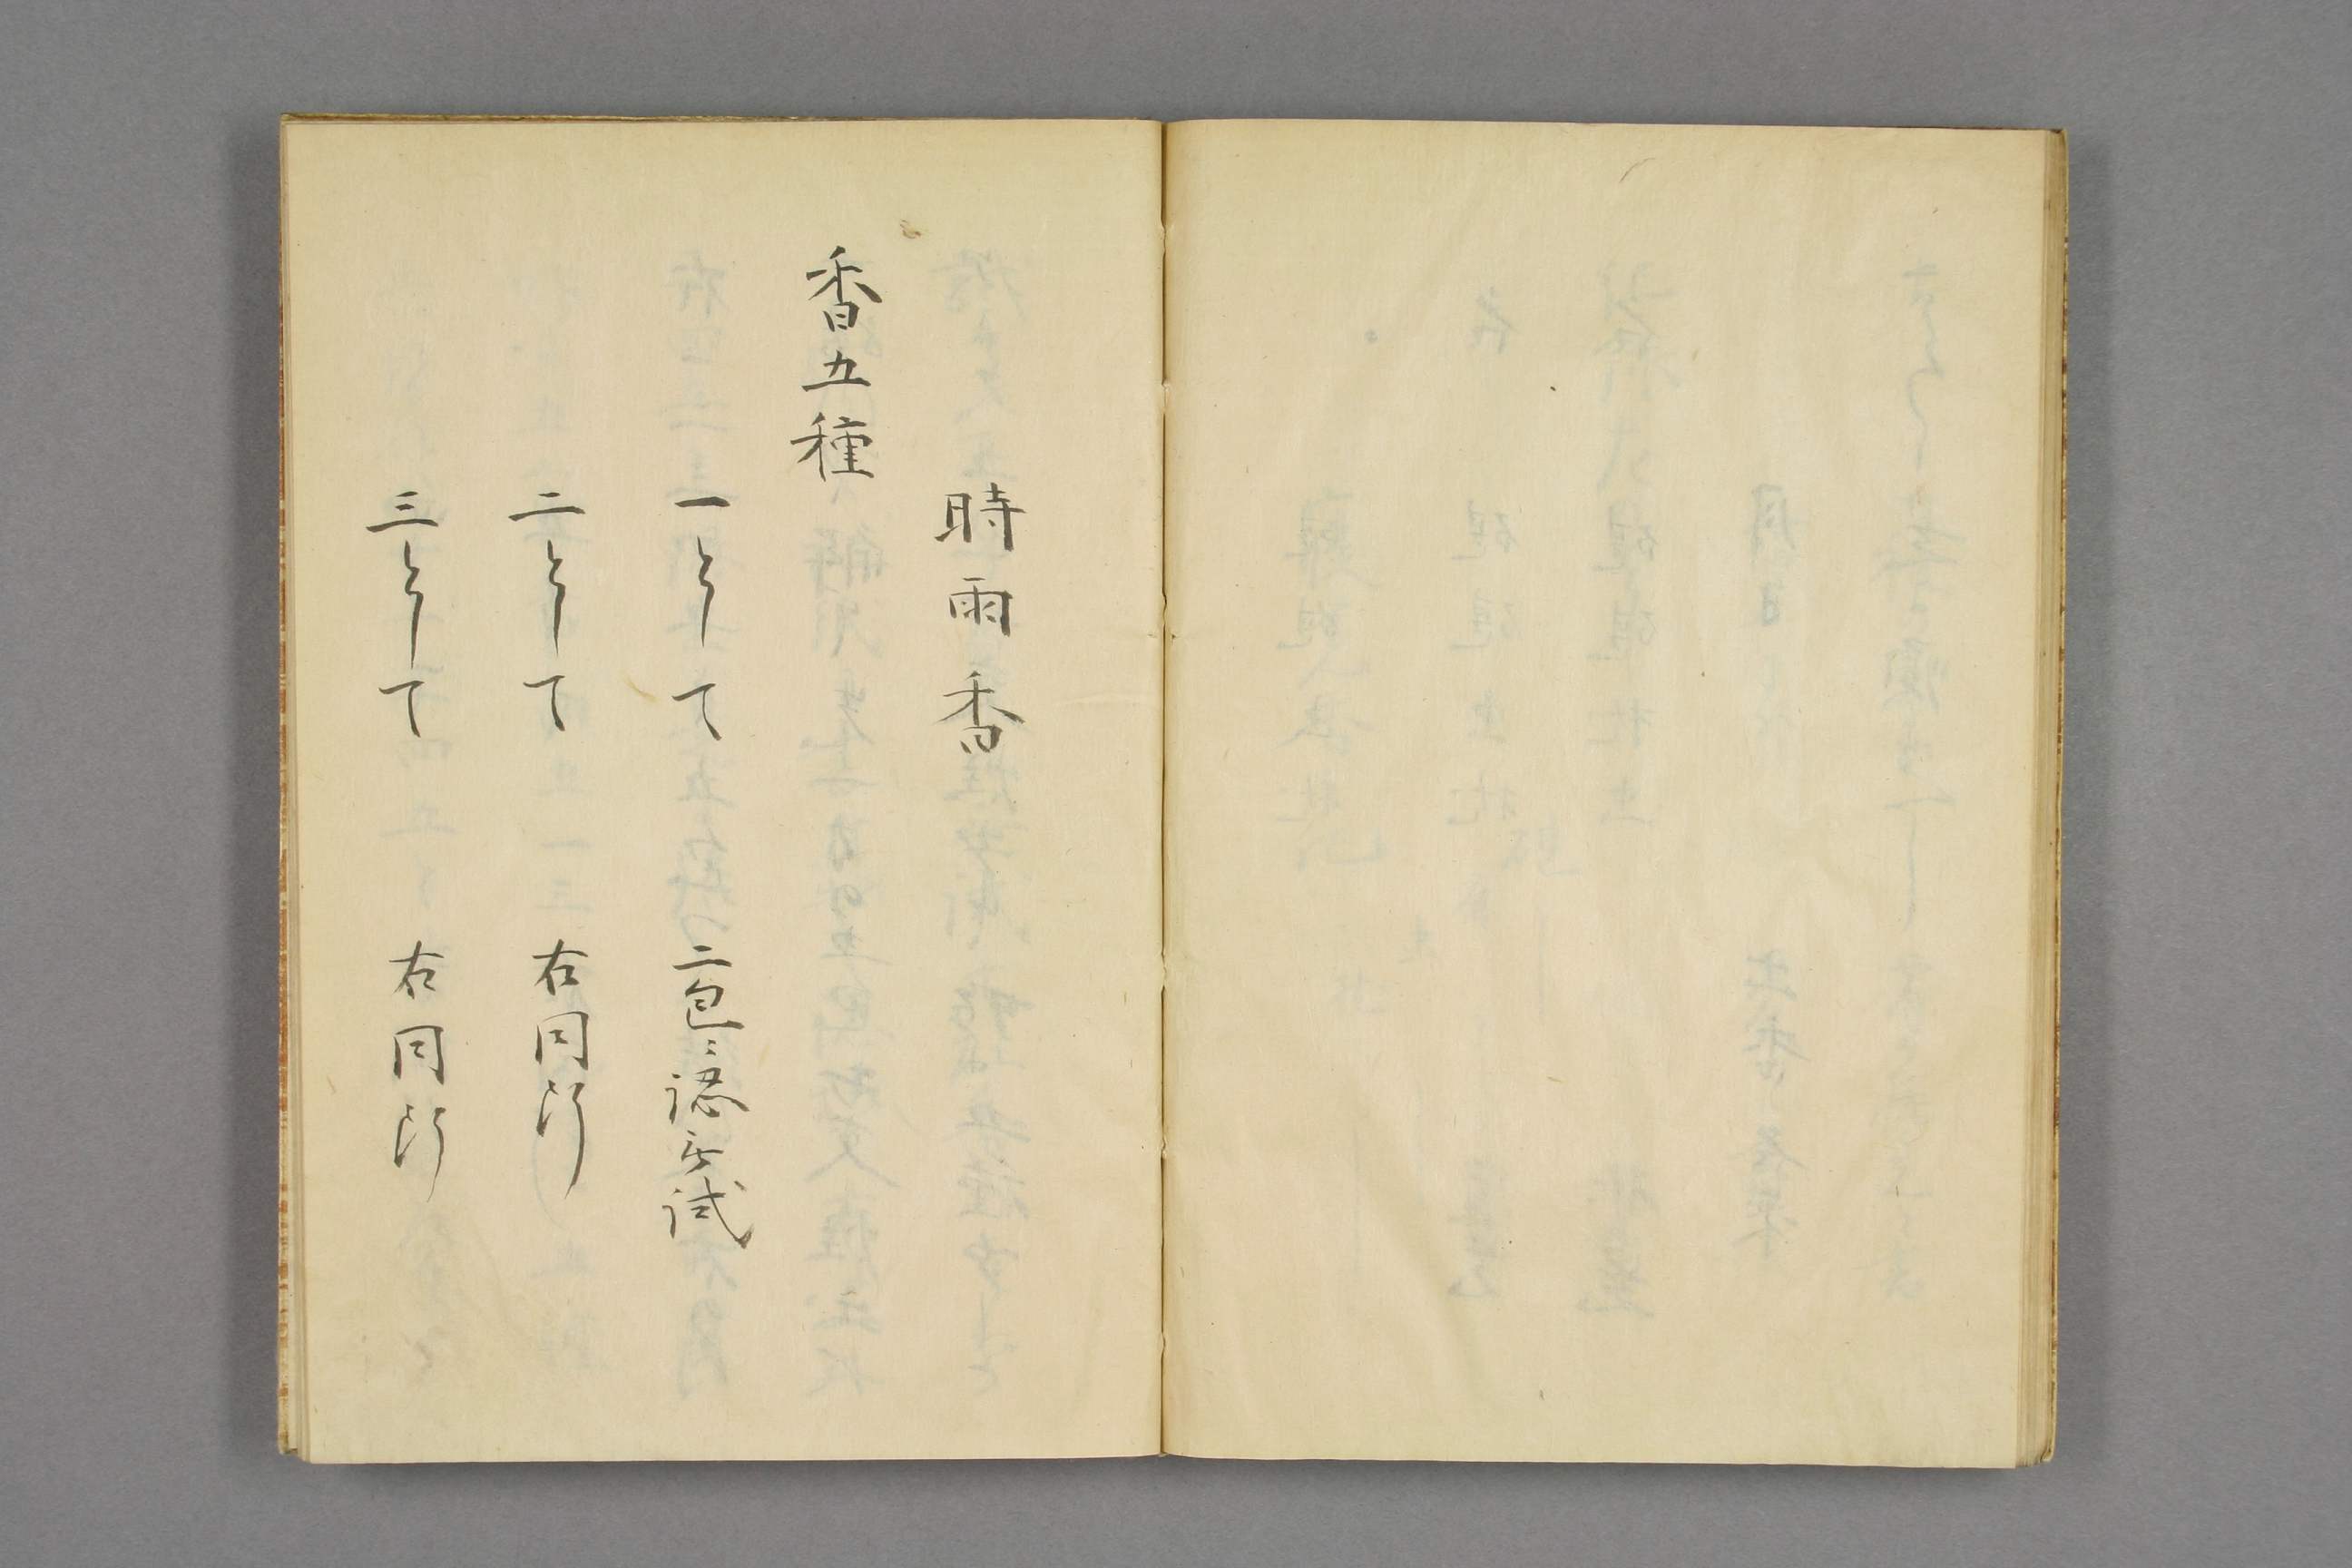 時雨香
香五種
一として 二包ニ認無試
二として 右同断
三として 右同断